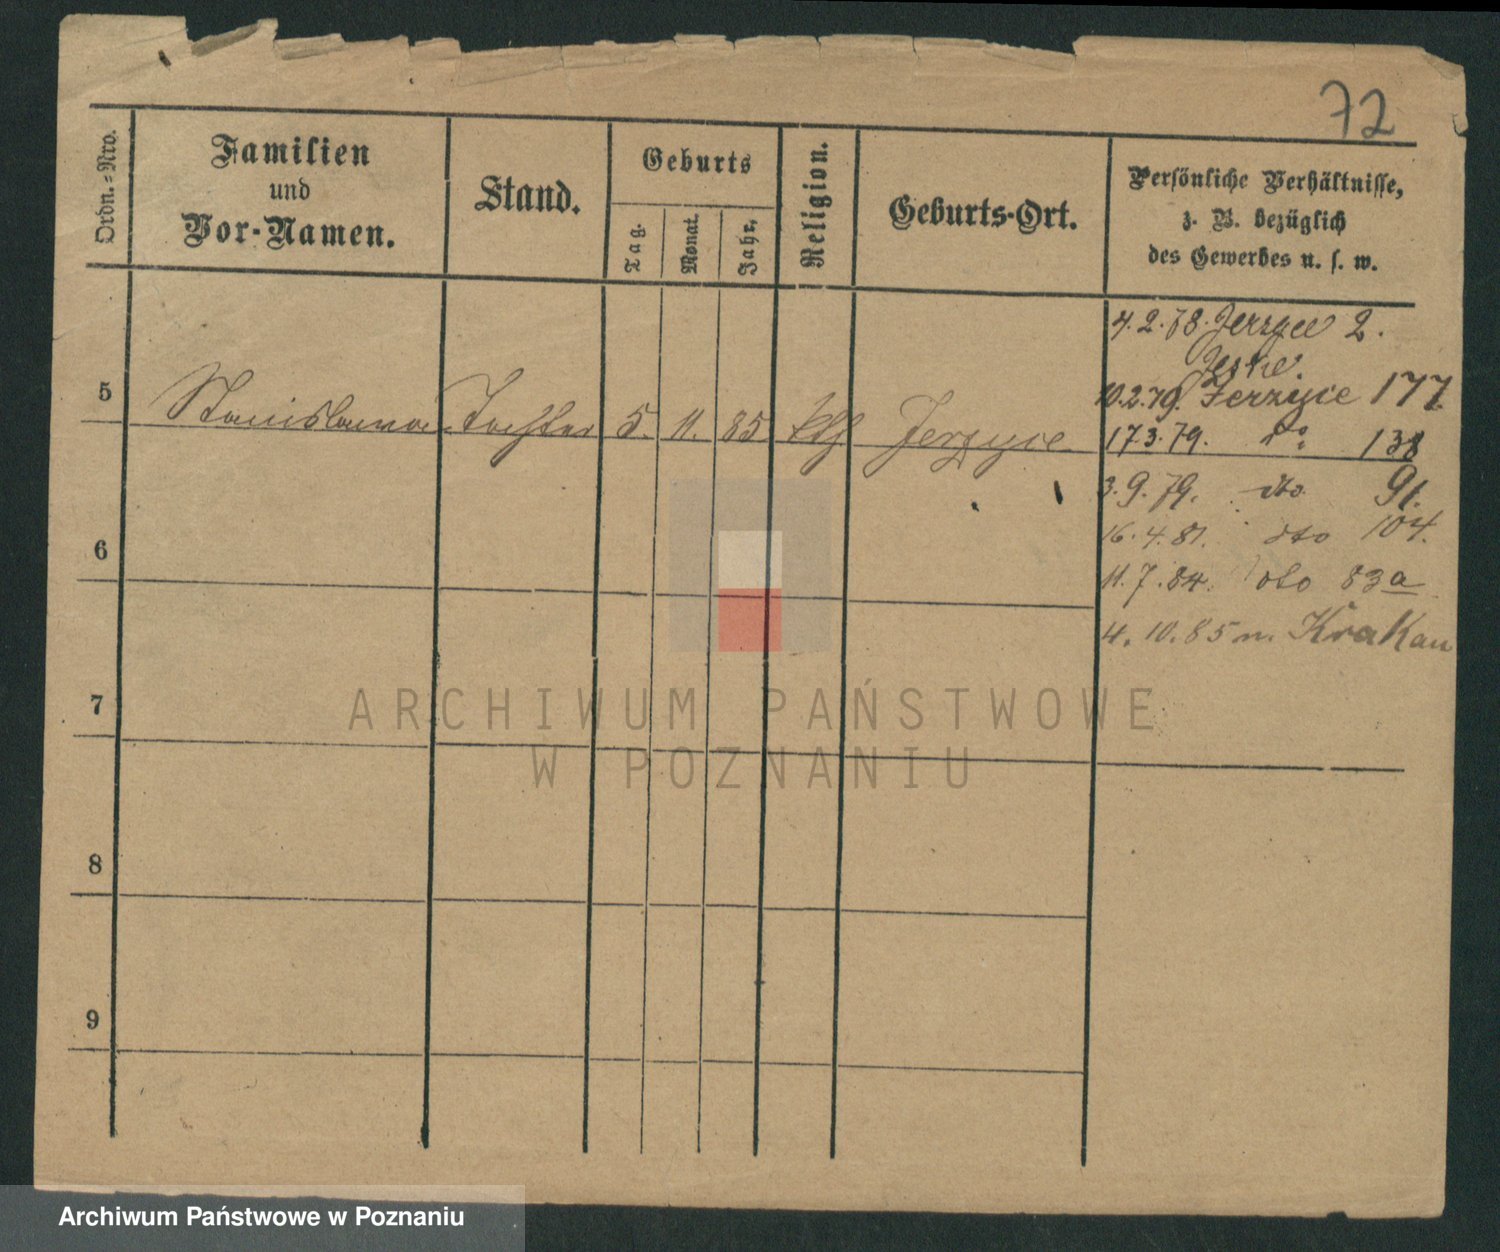 72
Ordn.-Nro.
Familien
und
Vor-Namen.
Stand.
Geburts
Tag.
Monat.
Jahr.
Religion.
Geburts-Ort.
Persönliche Verhältnisse,
z. B. bezüglich
des Gewerbes u. s. w.
4. 2. 78. Jerzyce 2.
10.2.79. Jerzyce 177
5 Stanislawa Tochter 5. 11. 85 kth Jerzyce
17.3.79. do 138
3. 9. 79. dto 91.
16. 4. 81. dto 104.
6
11. 7. 84. dto 83a
4. 10. 85 n. Krakau
7
8
9
ARCHIWUM PAŃSTWOWE
W POZNANIU
Archiwum Państwowe w Poznaniu